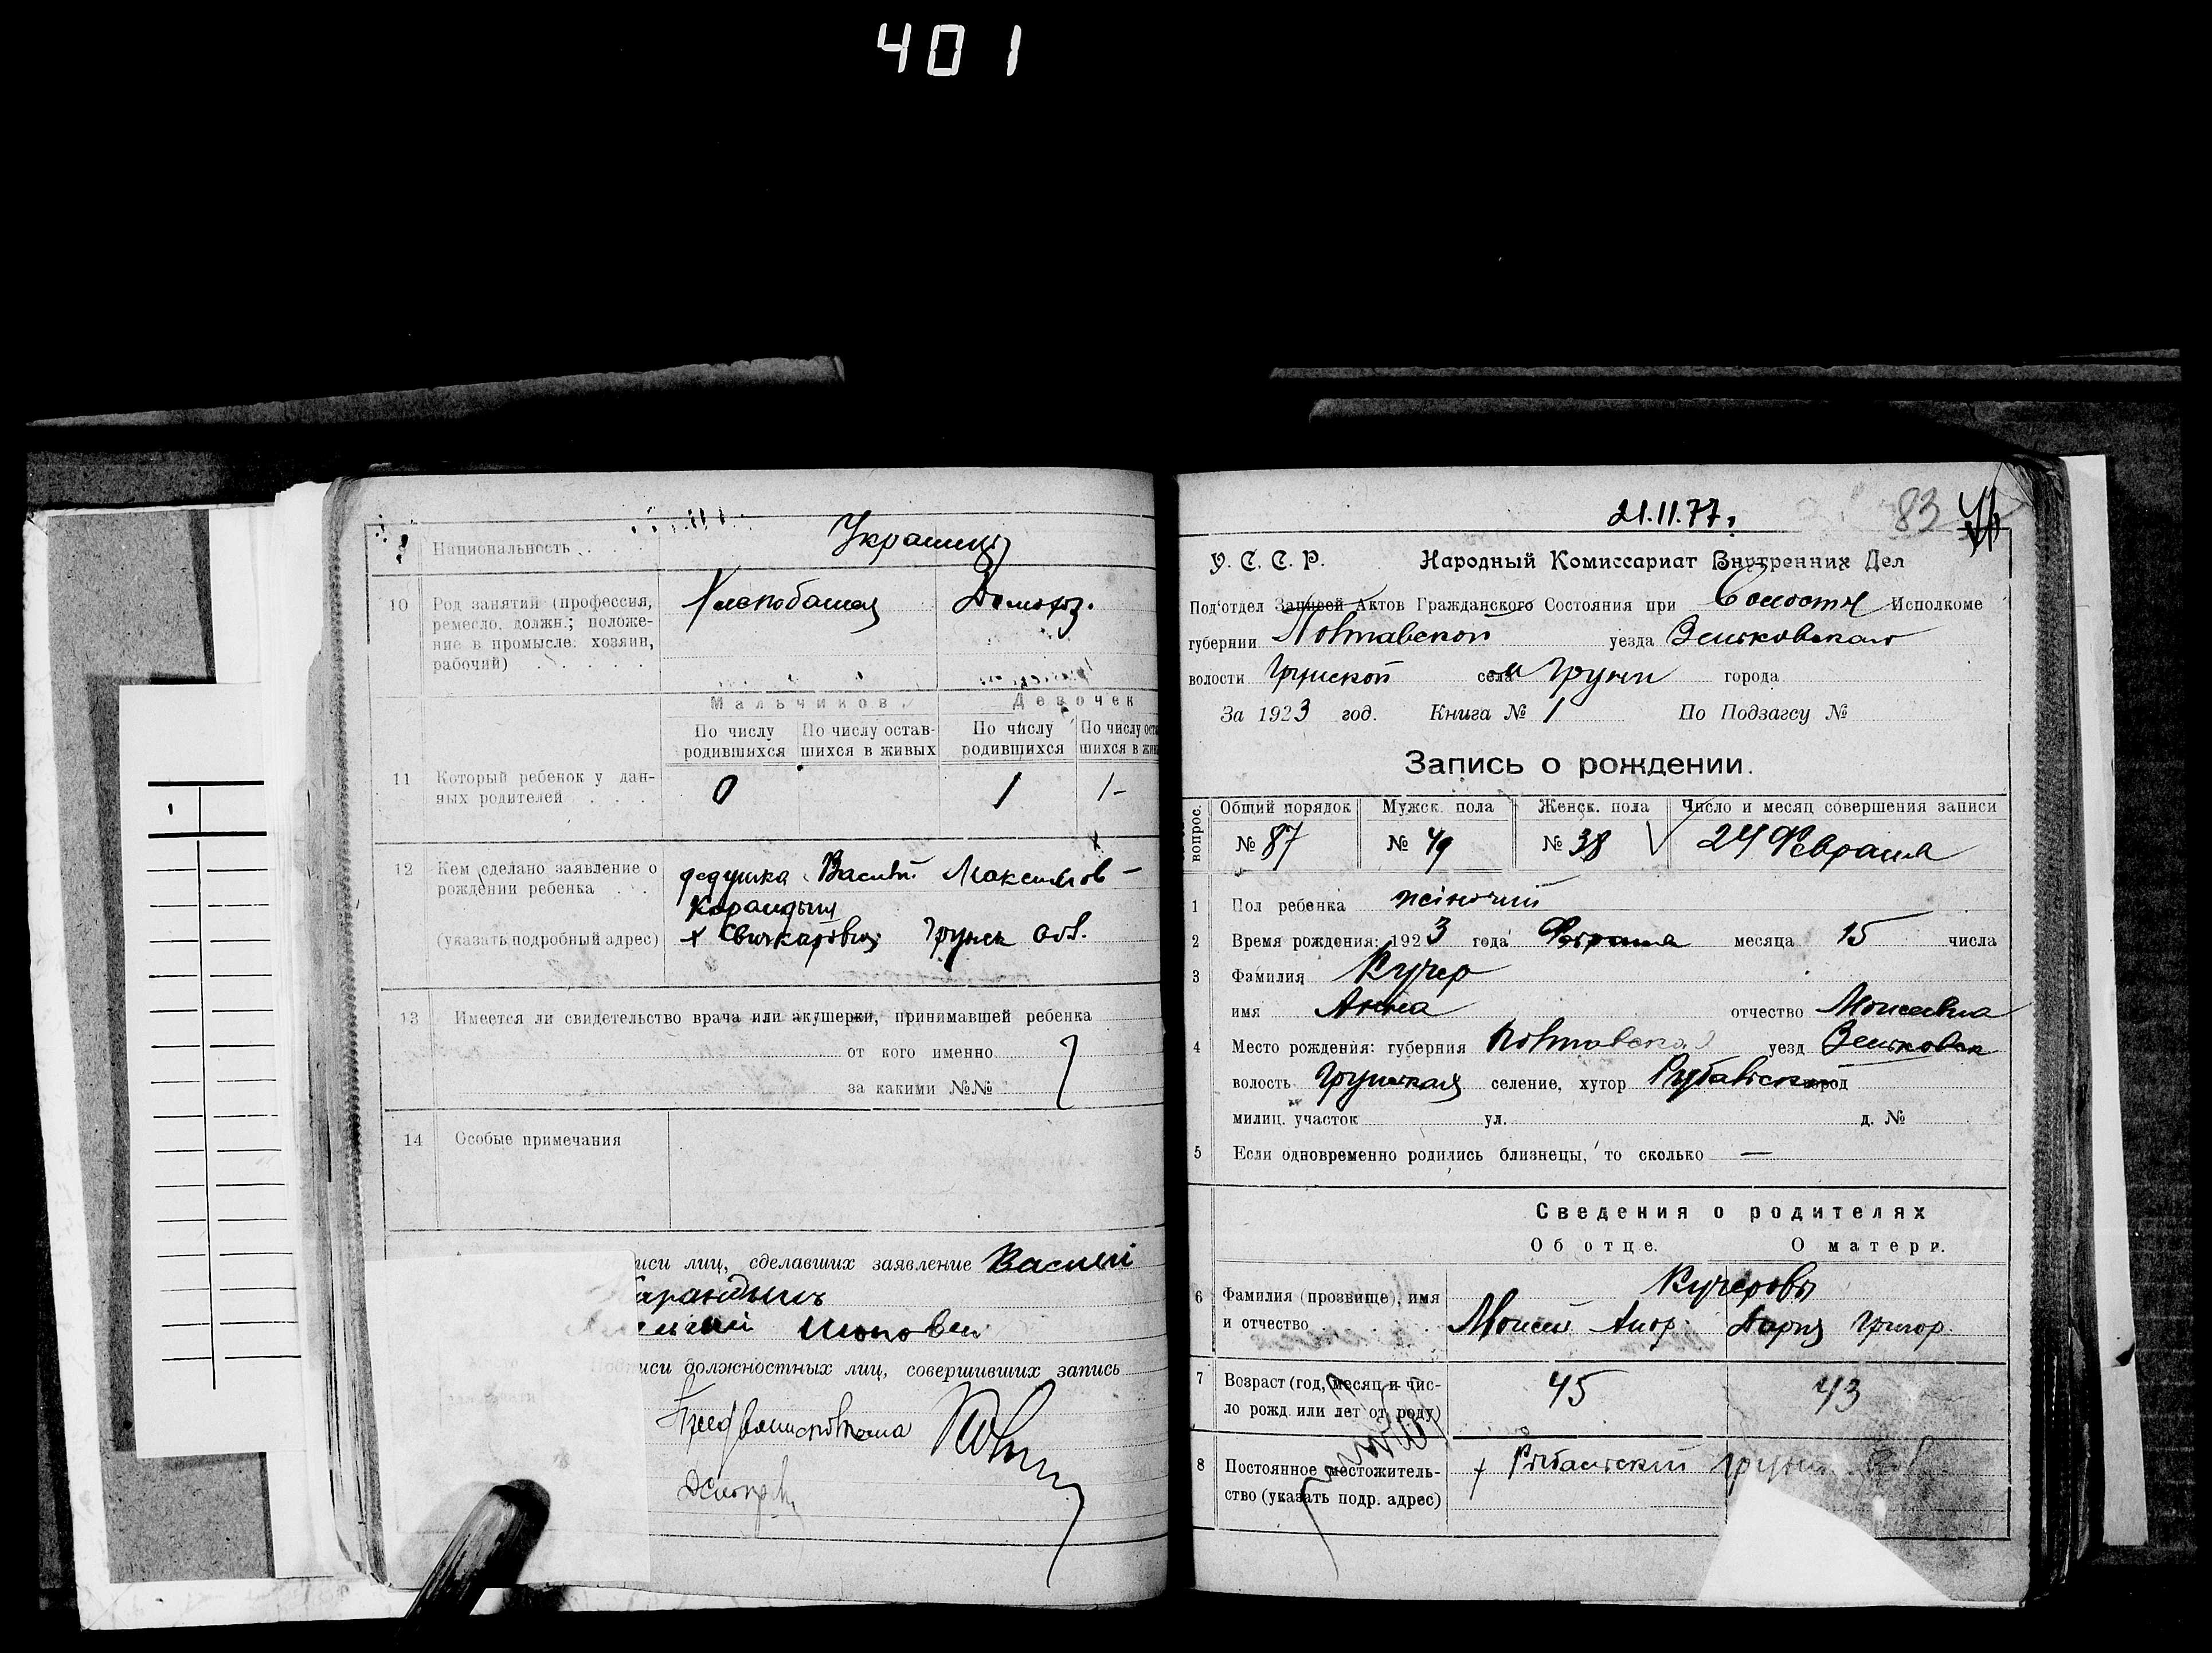 401
9 Национальность . . Украинцы
10 Род занятий (профессия, ремесло, должн.; положение в промысле: хозяин, рабочий) . . . . .
Хлебопашец Домохоз.
Мальчиков Девочек
По числу родившихся По числу оставшихся в живых По числу родившихся По числу оста
шихся в жив
11 Который ребенок у данных родителей . . .
0 1 1-
12 Кем сделано заявление о рождении ребенка . .
дедушка Василий Максимов-
(указать подробный адрес)
х Грунск
13 Имеется ли свидетельство врача или акушерки, принимавшей ребенка
от кого именно
за какими №№
14 Особые примечания
иси лиц, сделавших заявление Василий
Подписи должностных лиц, совершивших запись
21.11.77.
83
У. С. С. Р. Народный Комиссариат Внутренних Дел
Под'отдел Записей Актов Гражданского Состояния при Волостн Исполкоме
губернии Полтавской уезда Зеньковского
волости Грунской села Груни города
За 1923 год. Книга № 1 По Подзагсу №
Запись о рождении.
вопрос. Общий порядок Мужск. пола Женск. пола Число и месяц совершения записи
№ 87 № 49 № 38 24 Февраля
1 Пол ребенка жіночий
2 Время рождения: 1923 года Февраля месяца 15 числа
3 Фамилия Кучер
имя Анна отчество Моисеевна
4 Место рождения: губерния Полтавская уезд Зеньковск
волость Грунская селение, хутор город
милиц. участок ул. д. №
5 Если одновременно родились близнецы, то сколько —
Сведения о родителях
Об отце. О матери.
Кучеровы
6 Фамилия (прозвище), имя и отчество . . . . .
Моисей Дария Григор.
7 Возраст (год, месяц и число рожд. или лет от роду)
45 43
8 Постоянное местожительство (указать подр. адрес)
х